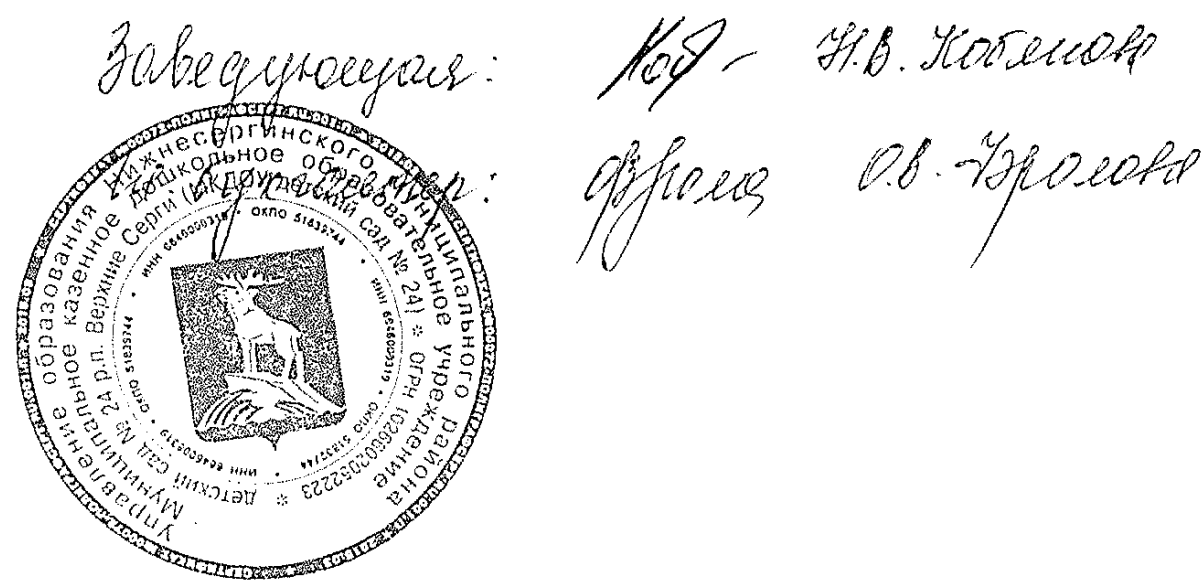 Заведующая: Н.В. Котянова
О.В. Фролова
Управление образования Нижнесергинского муниципального района
Муниципальное казенное дошкольное образовательное учреждение
детский сад № 24 р.п. Верхние Серги (МКДОУ детский сад № 24) * ОГРН 1026602052223 *
ИНН 6646009319 • ОКПО 51835744 • ИНН 6646009319 • ОКПО 51835744 • ИНН 6646009319 • ОКПО 51835744 •